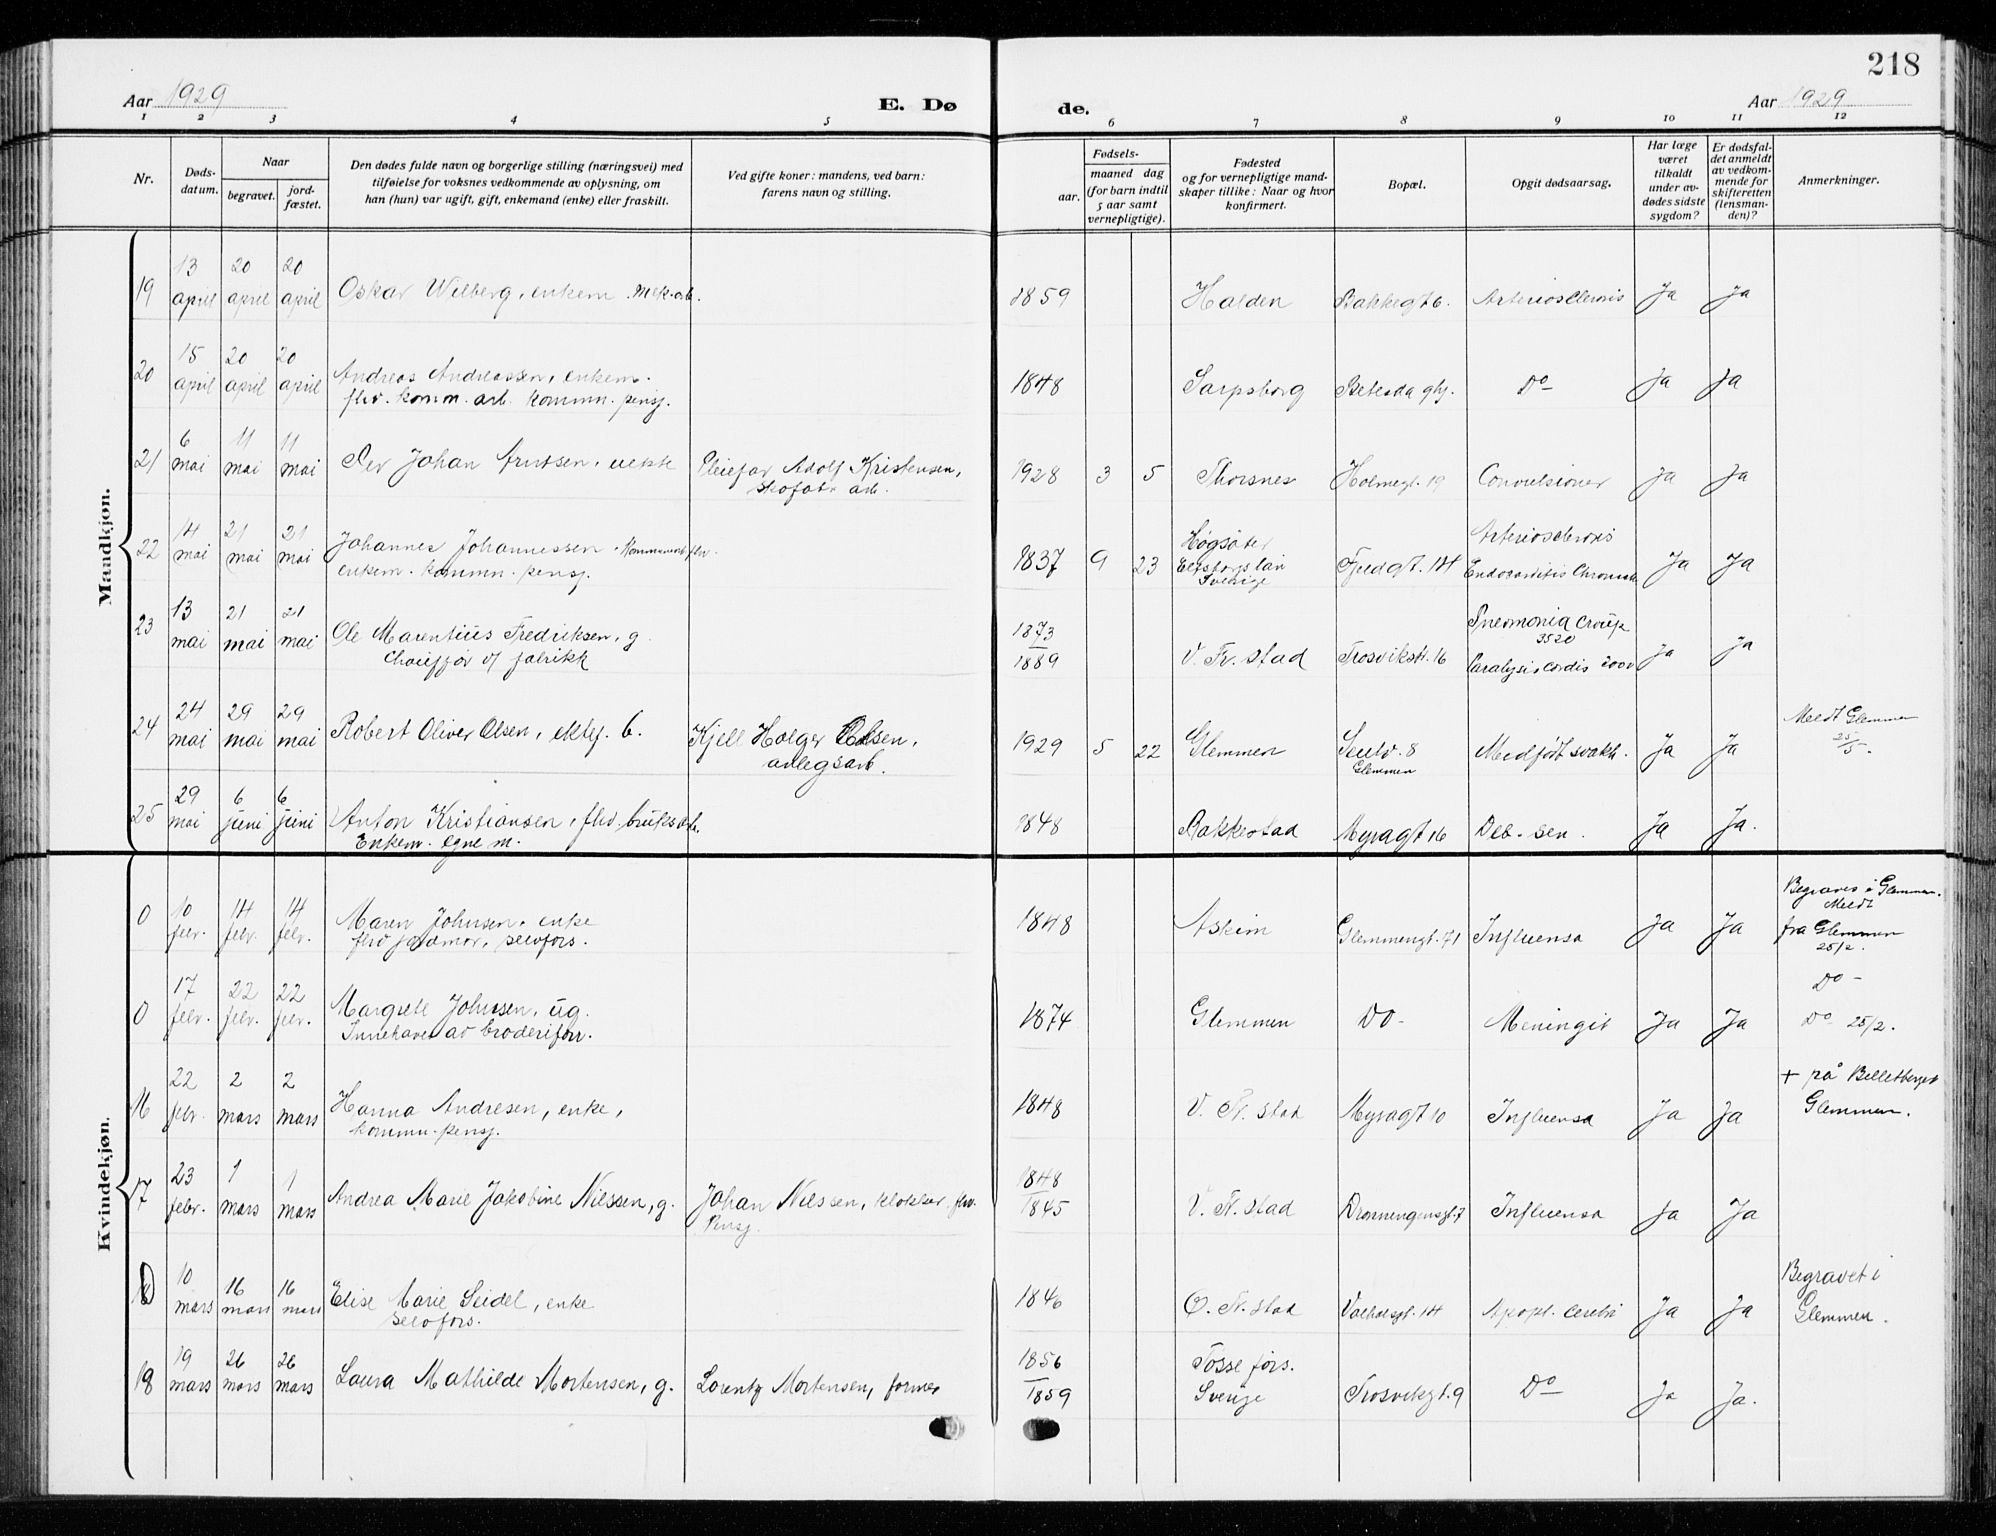 218
Aar 1929
E. Dø
de.
Aar 1929
1 2 3 4 5 6 7 8 9 10 11 12
Nr.
Døds-
datum.
Naar
begravet.
jord-
fæstet.
Den dødes fulde navn og borgerlige stilling (næringsvei) med
tilføielse for voksnes vedkommende av oplysning, om
han (hun) var ugift, gift, enkemand (enke) eller fraskilt.
Ved gifte koner: mandens, ved barn:
farens navn og stilling.
Fødsels-
aar.
maaned dag
(for barn indtil
5 aar samt
vernepligtige).
Fødested
og for vernepligtige mand-
skaper tillike: Naar og hvor
konfirmert.
Bopæl.
Opgit dødsaarsag.
Har læge
været
tilkaldt
under av-
dødes sidste
sygdom?
Er dødsfal-
det anmeldt
av vedkom-
mende for
skifteretten
(lensman-
den)?
Anmerkninger.
Mandkjøn.
19 13 april 20 april 20 april Oskar Wilberg, enkem. mek. arb. 1859 Halden Bakkegt 6. Arteriosclerosis Ja Ja
20 15 april 20 april 20 april Andreas Andreassen, enkem.
fhv. komm. arb. kommn. pensj. 1848 Sarpsborg Betesda ghj. Do Ja Ja
21 6 mai 11 mai 11 mai Per Johan uekte Pleiefar Adolf Kristensen,
skofabr. arb. 1928 3 5 Thorsnes Holmegt. 19 Convulsioner Ja Ja
22 14 mai 21 mai 21 mai Johannes Johannessen. fhv.
enkem. kommn. pensj. 1837 9 23 Høgsäter
Elfsborgs län
Sverige 14 Arteriosclerosis
Endocarditis Chronica Ja Ja
23 13 mai 21 mai 21 mai Ole Marentius Fredriksen, g.
Chauffør v/ fabrikk 1873
1889 V. Fr.stad Trosvikstr. 16 Pneomonia Croup
3520
Paralysis Cordis Ja Ja
24 24 mai 29 mai 29 mai Robert Oliver Olsen, ektef. b. Kjell Holger Olsen,
anlegsarb. 1929 5 22 Glemmen 8
Glemmen Medfødt svakh. Ja Ja Meldt Glemmen
25/5.
25 29 mai 6 juni 6 juni Anton Kristiansen, fhv. bruksarb.
Enkem. Egne m. 1848 Rakkestad Myragt 16 Deb. sen. Ja Ja.
Kvindekjøn.
0 10 febr. 14 febr. 14 febr. Maren Johnsen, enke
fhv jordmor, selvfors. 1848 Askim Glemmengt. 71 Influensa Ja Ja Begraves i Glemmen.
Meldt
fra Glemmen
25/2.
0 17 febr. 22 febr. 22 febr. Margrete Johnsen, ug.
Innehaver av broderiforr. 1874 Glemmen Do- Meningit Ja Ja Do -
Do 25/2.
16 22 febr. 2 mars 2 mars Hanna Andresen, enke,
kommn. pensj. 1848 V. Fr.stad Myragt 10 Influensa Ja Ja + på Belletberget
Glemmen.
17 23 febr. 1 mars 1 mars Andrea Marie Jakobine Nilssen, g. Johan Nilssen, klokker fhv.
Pensj. 1848
1845 V. Fr.stad Dronningensgt. 7 Influensa Ja Ja
10 mars 16 mars 16 mars Elise Marie Seidel, enke
selvfors. 1846 Ø. Fr.stad 14 Apopl. Cerebri Ja Ja Begravet i
Glemmen.
18 19 mars 26 mars 26 mars Laura Mathilde Mortensen, g. Lorentz Mortensen, former 1856
1859 Tosse førs.
Sverige Trosvikgt. 9 Do Ja Ja.